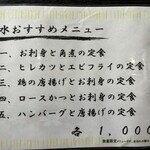 水おすすめメニュー
一、お刺身と角煮の定食
二、ヒレカツとエビフライの定食
三、鶏の唐揚げとお刺身の定食
四、ロースかつとお刺身の定食
五、ハンバーグと唐揚げの定食
各 1,000